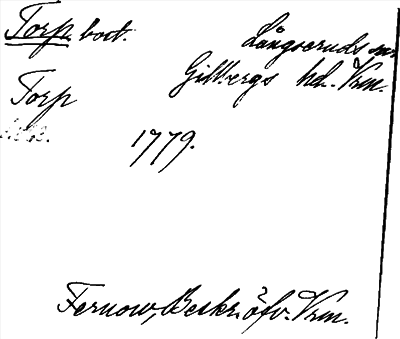 Torp, bort. Långseruds sn.
Gillbergs hd. Vrm.
Torp
1779.
Fernow, Beskr. öfv. Vrm.